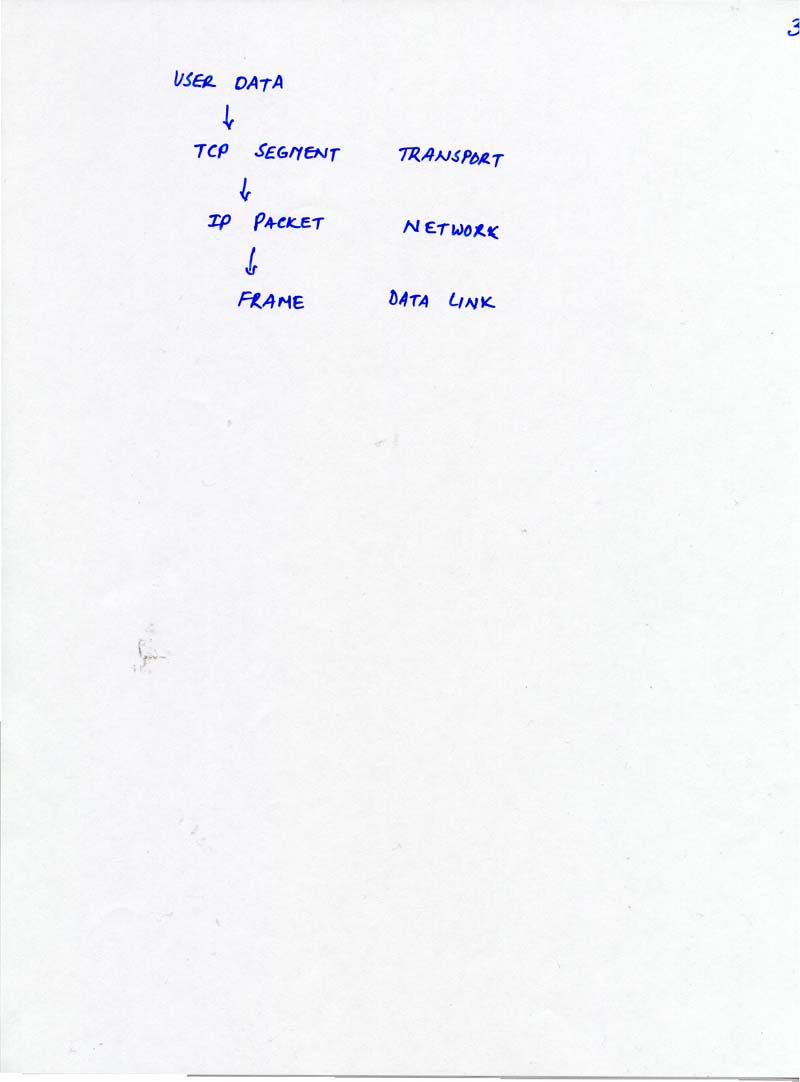 3
USER DATA
↓
TCP SEGMENT TRANSPORT
↓
IP PACKET NETWORK
↓
FRAME DATA LINK